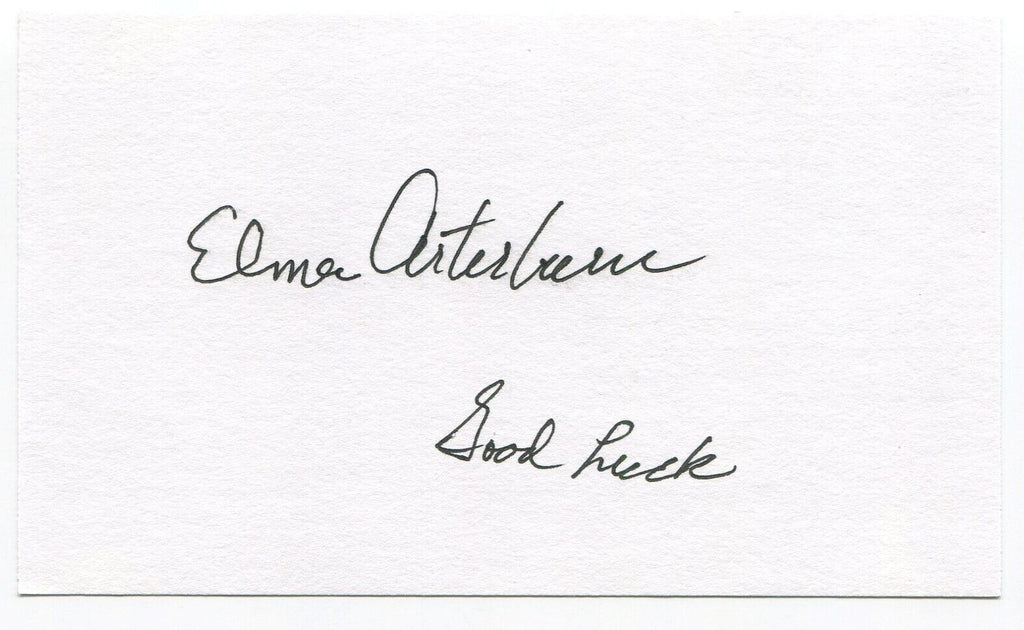 Elmer Arterburn
Good Luck